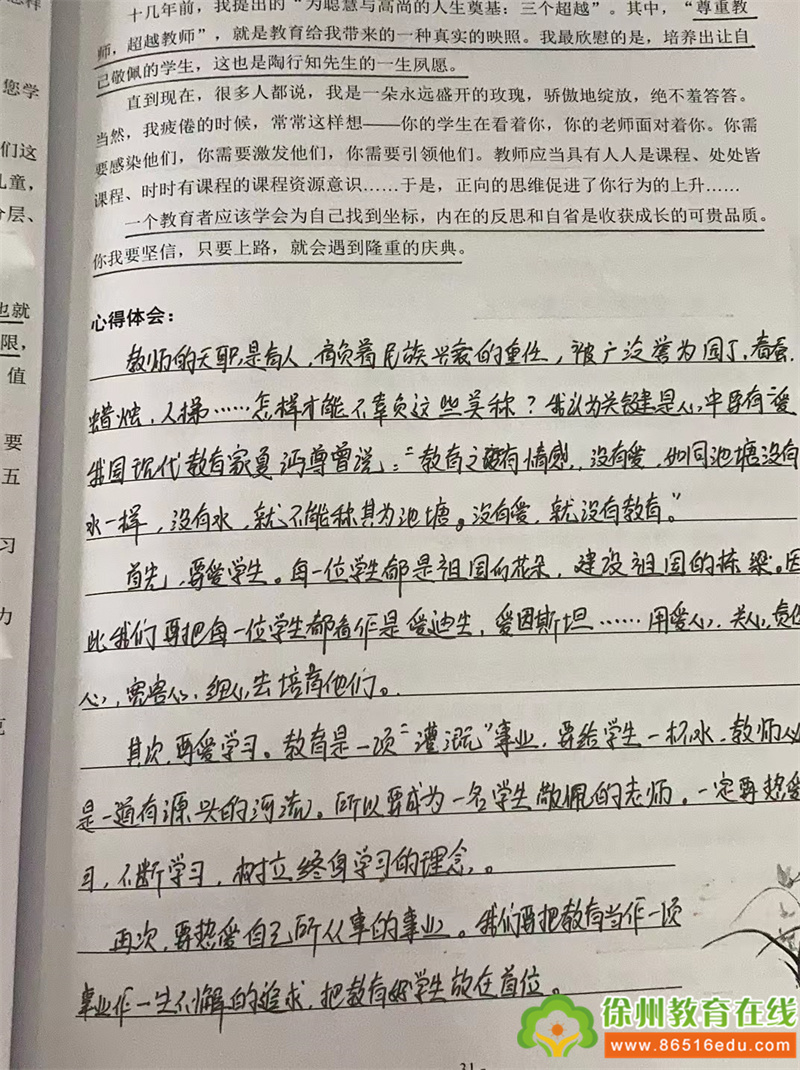 怎样
十几年前，我提出的“为聪慧与高尚的人生奠基：三个超越”。其中，“尊重教
师，超越教师”，就是教育给我带来的一种真实的映照。我最欣慰的是，培养出让自
己敬佩的学生，这也是陶行知先生的一生夙愿。
您学
直到现在，很多人都说，我是一朵永远盛开的玫瑰，骄傲地绽放，绝不羞答答。
当然，我疲倦的时候，常常这样想——你的学生在看着你，你的老师面对着你。你需
们这
要感染他们，你需要激发他们，你需要引领他们。教师应当具有人人是课程、处处皆
儿童，
课程、时时有课程的课程资源意识……于是，正向的思维促进了你行为的上升……
层、
一个教育者应该学会为自己找到坐标，内在的反思和自省是收获成长的可贵品质。
你我要坚信，只要上路，就会遇到隆重的庆典。
也就
心得体会：
限，
教师的天职是育人，肩负着民族兴衰的重任，被广泛誉为园丁，春蚕，
值
蜡烛，人梯……怎样才能不辜负这些美称？我认为关键是心中要有“爱
要
我国现代教育家夏沔尊曾说：“教育之没有情感，没有爱，如同池塘没有
五
水一样，没有水，就不能称其为池塘。没有爱，就没有教育。”
习
首先，要爱学生。每一位学生都是祖国的花朵，建设祖国的栋梁。因
力
此我们要把每一位学生都看作是爱迪生，爱因斯坦……用爱心，关心，责任
心，宽容心，细心去培育他们。
其次，要爱学习。教育是一项“灌溉”事业，要给学生一杯水，教师必
是一道有源头的河流。所以要成为一名学生敬佩的老师，一定要热爱
习，不断学习，树立终身学习的理念。
再次，要热爱自己所从事的事业。我们要把教育当作一项
事业作一生不懈的追求，把教育好学生放在首位。
31
徐州教育在线
www.86516edu.com